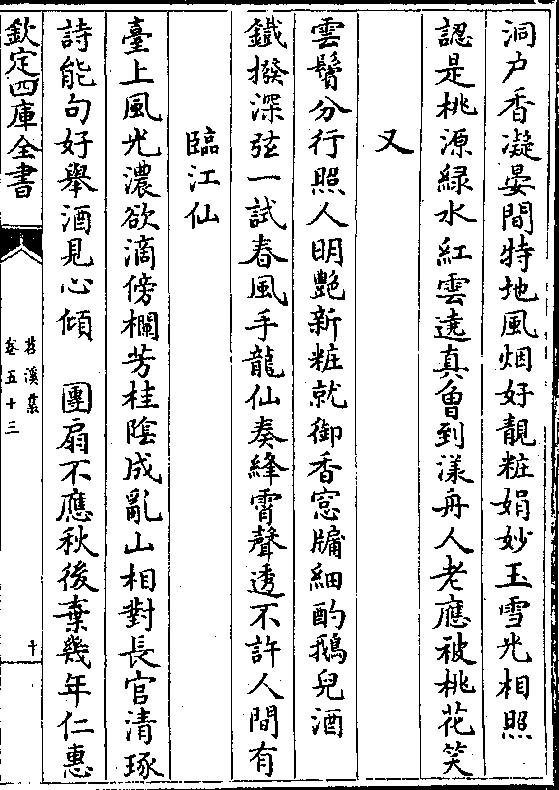 洞户香凝晏間特地風烟好靚粧娟妙玉雪光相照
認是桃源緑水紅雲遶真曾到漾舟人老應被桃花笑
又
雲鬢分行照人明艷新粧就御香窓牖細酌鵝兒酒
鐵撥深弦一試春風手龍仙奏絳霄聲透不許人間有
臨江仙
臺上風光濃欲滴傍欄芳桂隂成亂山相對長官清琢
詩能句好舉酒見心傾　團扇不應秋後棄幾年仁惠
欽定四庫全書
苕溪集
卷五十三
十